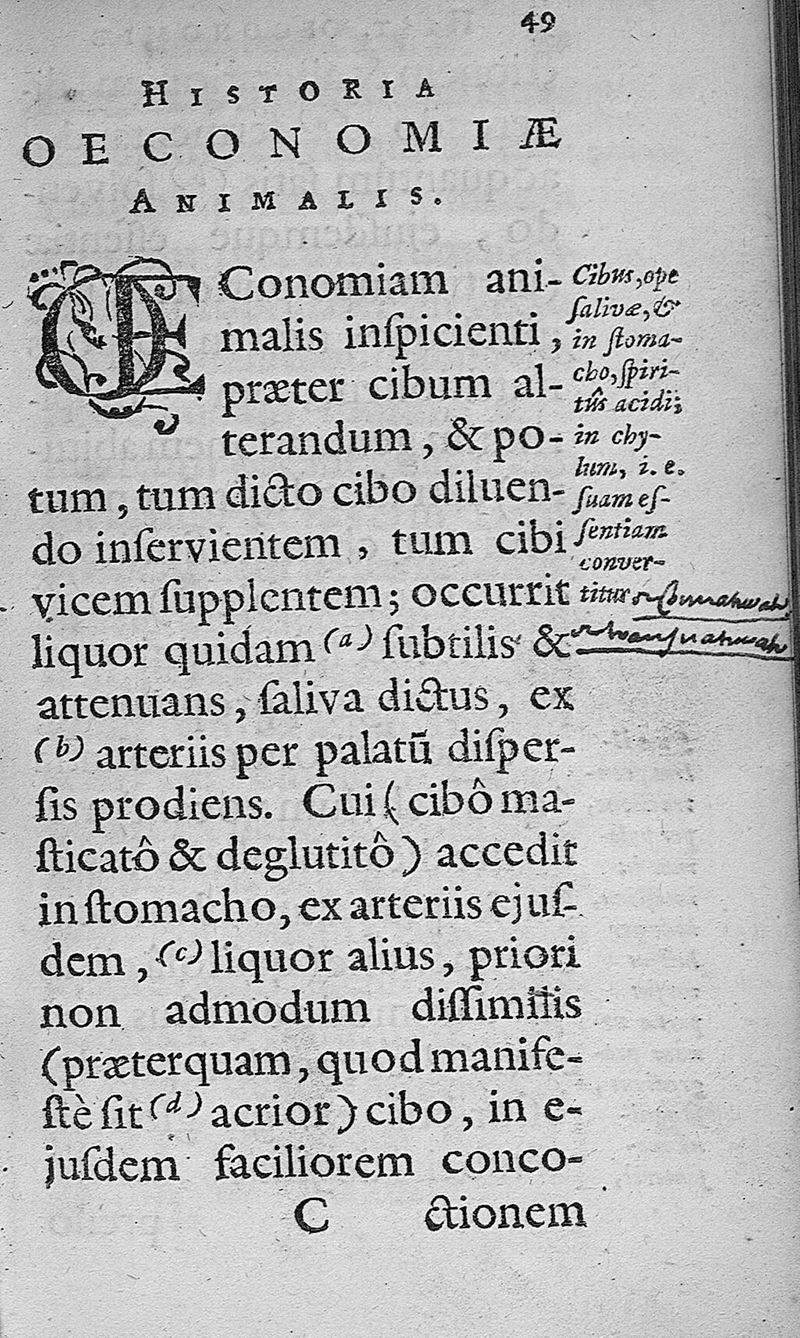 49
HISTORIA
OECONOMIÆ
ANIMALIS.
ŒConomiam ani-
malis inſpicienti,
præter cibum al-
terandum, & po-
tum, tum dicto cibo diluen-
do inſervientem, tum cibi
vicem ſupplentem; occurrit
liquor quidam (a) ſubtilis &
attenuans, ſaliva dictus, ex
(b) arteriis per palatū diſper-
ſis prodiens. Cui (cibô ma-
ſticatô & deglutitô) accedit
in ſtomacho, ex arteriis ejuſ-
dem, (c) liquor alius, priori
non admodum diſſimilis
(præterquam, quod manife-
ſtè ſit (d) acrior) cibo, in e-
juſdem faciliorem conco-
C ctionem
Cibus, ope
ſalivæ, &
in ſtoma-
cho, ſpiri-
tûs acidi;
in chy-
lum, i. e.
ſuam eſ-
ſentiam
conver-
titur